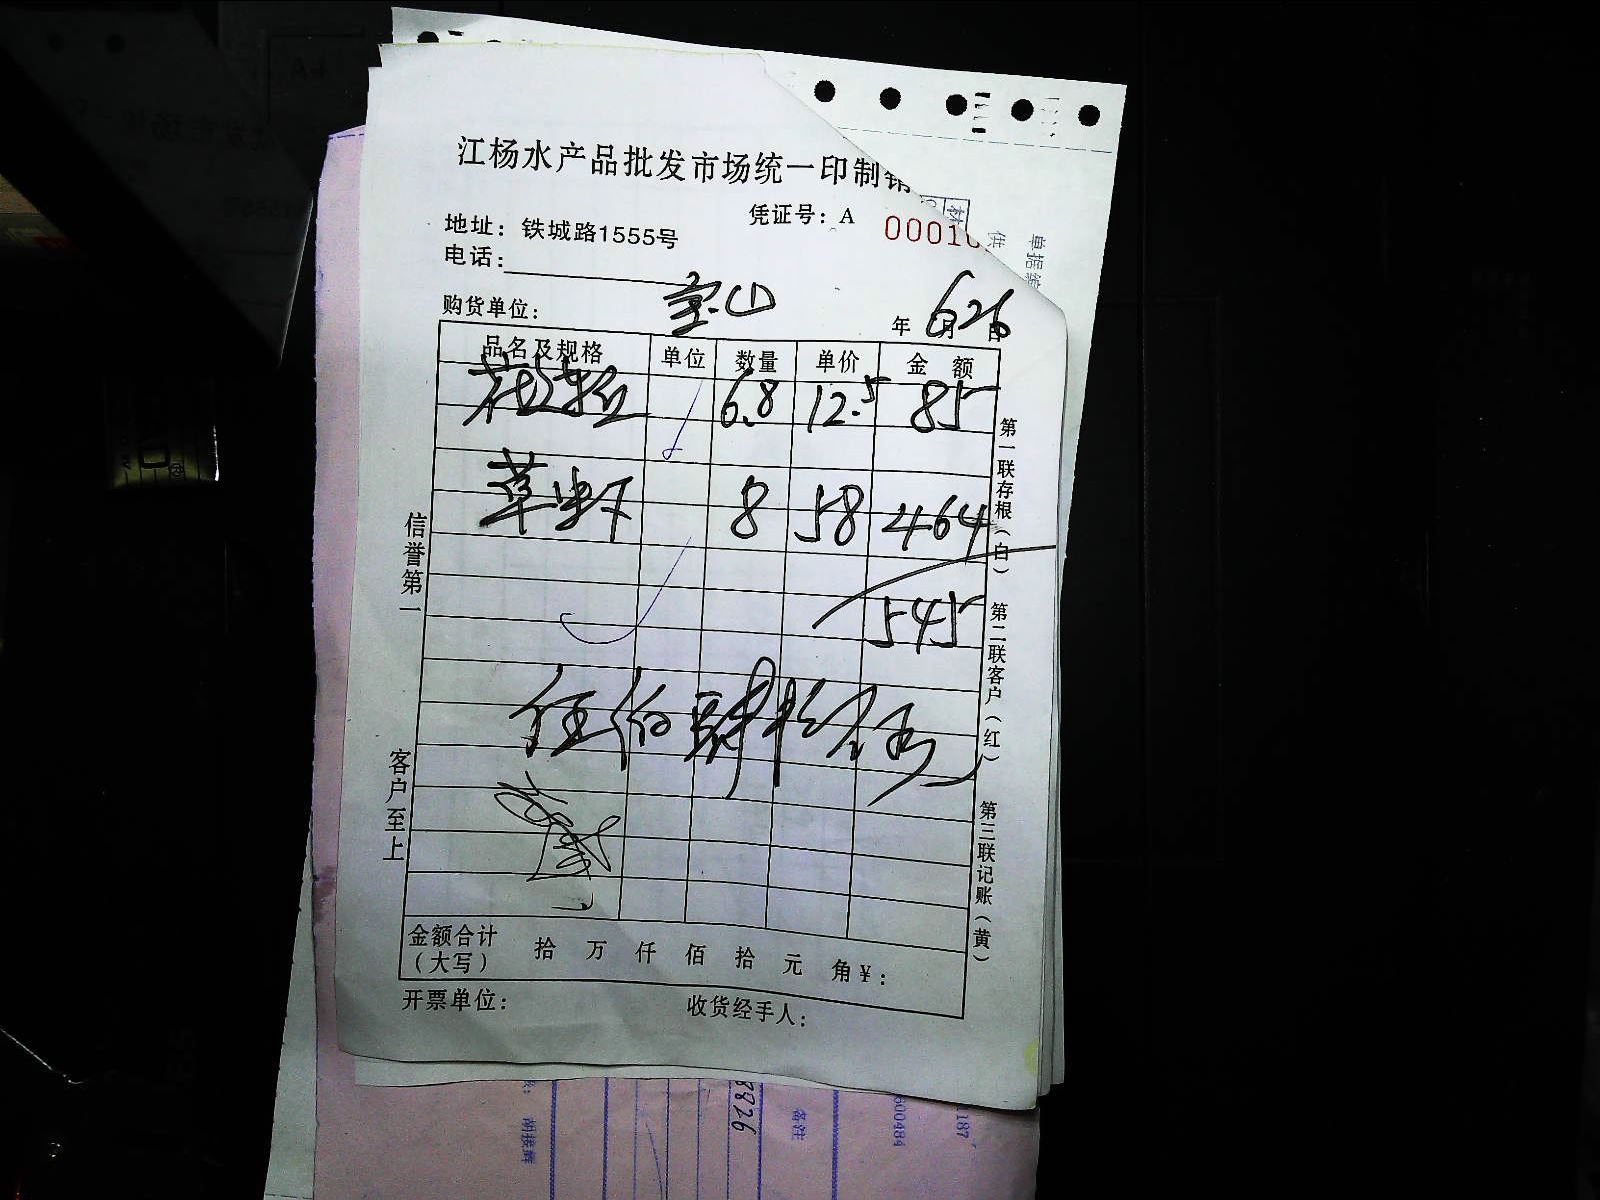 江杨水产品批发市场统一印制销
凭证号：A 00010
地址：铁城路1555号
电话：
购货单位：宝山
年 6月26日
品名及规格 单位 数量 单价 金额
花 6.8 12.5 85
草虾 8 58 464
545
伍佰肆拾伍
金额合计（大写） 拾 万 仟 佰 拾 元 角 ¥：
开票单位： 收货经手人：
信誉第一
客户至上
第一联存根（白）
第二联客户（红）
第三联记账（黄）
单据编
供
8826
备注
600484
187